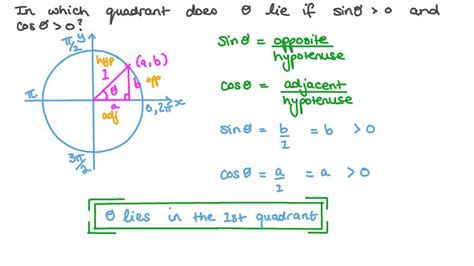 In which quadrant does θ lie if sinθ > 0 and
cosθ > 0?
π/2
y
hyp
1
(a, b)
b
opp
θ
a
adj
π
0, 2π
x
3π/2
sinθ = opposite/hypotenuse
cosθ = adjacent/hypotenuse
sinθ = b/1 = b > 0
cosθ = a/1 = a > 0
θ lies in the 1st quadrant